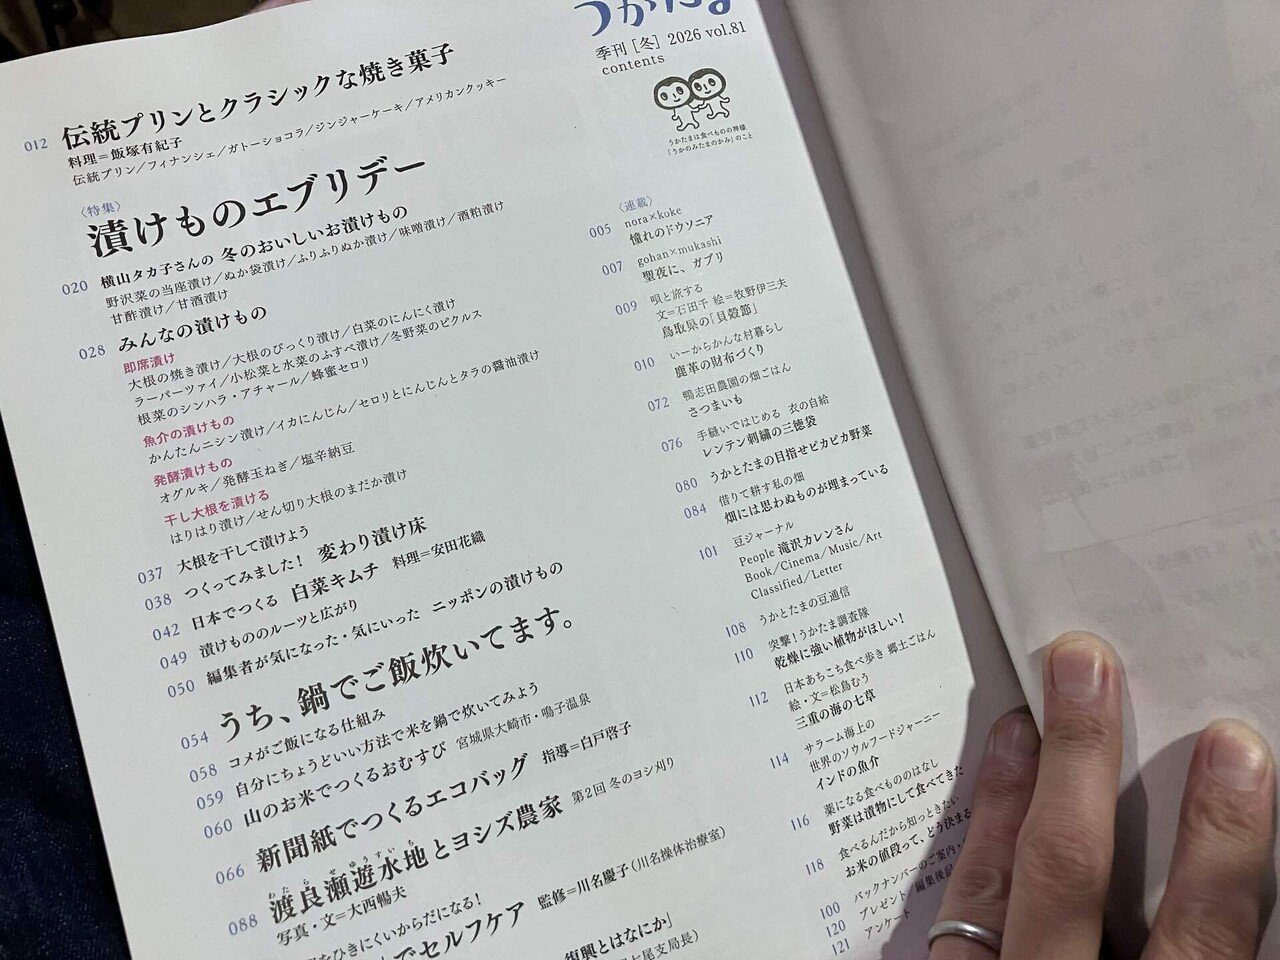 うかたま
季刊［冬］2026 vol.81
contents
うかたまは食べものの神様
「うかのみたまのかみ」のこと
012 伝統プリンとクラシックな焼き菓子
料理＝飯塚有紀子
伝統プリン／フィナンシェ／ガトーショコラ／ジンジャーケーキ／アメリカンクッキー
〈特集〉
漬けものエブリデー
020 横山タカ子さんの 冬のおいしいお漬けもの
野沢菜の当座漬け／ぬか袋漬け／ふりふりぬか漬け／味噌漬け／酒粕漬け
甘酢漬け／甘酒漬け
028 みんなの漬けもの
即席漬け
大根の焼き漬け／大根のびっくり漬け／白菜のにんにく漬け
ラーパーツァイ／小松菜と水菜のふすべ漬け／冬野菜のピクルス
根菜のシンハラ・アチャール／蜂蜜セロリ
魚介の漬けもの
かんたんニシン漬け／イカにんじん／セロリとにんじんとタラの醤油漬け
発酵漬けもの
オグルキ／発酵玉ねぎ／塩辛納豆
干し大根を漬ける
はりはり漬け／せん切り大根のまだか漬け
037 大根を干して漬けよう
038 つくってみました！ 変わり漬け床
042 日本でつくる 白菜キムチ 料理＝安田花織
049 漬けもののルーツと広がり
050 編集者が気になった・気にいった ニッポンの漬けもの
054 うち、鍋でご飯炊いてます。
058 コメがご飯になる仕組み
059 自分にちょうどいい方法で米を鍋で炊いてみよう
060 山のお米でつくるおむすび 宮城県大崎市・鳴子温泉
066 新聞紙でつくるエコバッグ 指導＝白戸啓子
わたらせゆうすいち
088 渡良瀬遊水地とヨシズ農家 第2回 冬のヨシ刈り
写真・文＝大西暢夫
をひきにくいからだになる！
でセルフケア 監修＝川名慶子（川名操体治療室）
復興とはなにか」
七尾支局長）
〈連載〉
005 nora×koke
憧れのドウソニア
007 gohan×mukashi
聖夜に、ガブリ
009 唄と旅する
文＝石田千 絵＝牧野伊三夫
鳥取県の「貝殻節」
010 いーからかんな村暮らし
鹿革の財布づくり
072 鴨志田農園の畑ごはん
さつまいも
076 手縫いではじめる 衣の自給
レンテン刺繍の三徳袋
080 うかとたまの目指せピカピカ野菜
084 借りて耕す私の畑
畑には思わぬものが埋まっている
101 豆ジャーナル
People 滝沢カレンさん
Book／Cinema／Music／Art
Classified／Letter
108 うかとたまの豆通信
110 突撃！うかたま調査隊
乾燥に強い植物がほしい！
112 日本あちこち食べ歩き 郷土ごはん
絵・文＝松鳥むう
三重の海の七草
114 サラーム海上の
世界のソウルフードジャーニー
インドの魚介
116 薬になる食べもののはなし
野菜は漬物にして食べてきた
118 食べるんだから知っときたい
お米の値段って、どう決まる
100 バックナンバーのご案内・
120 プレゼント／編集後記
121 アンケート